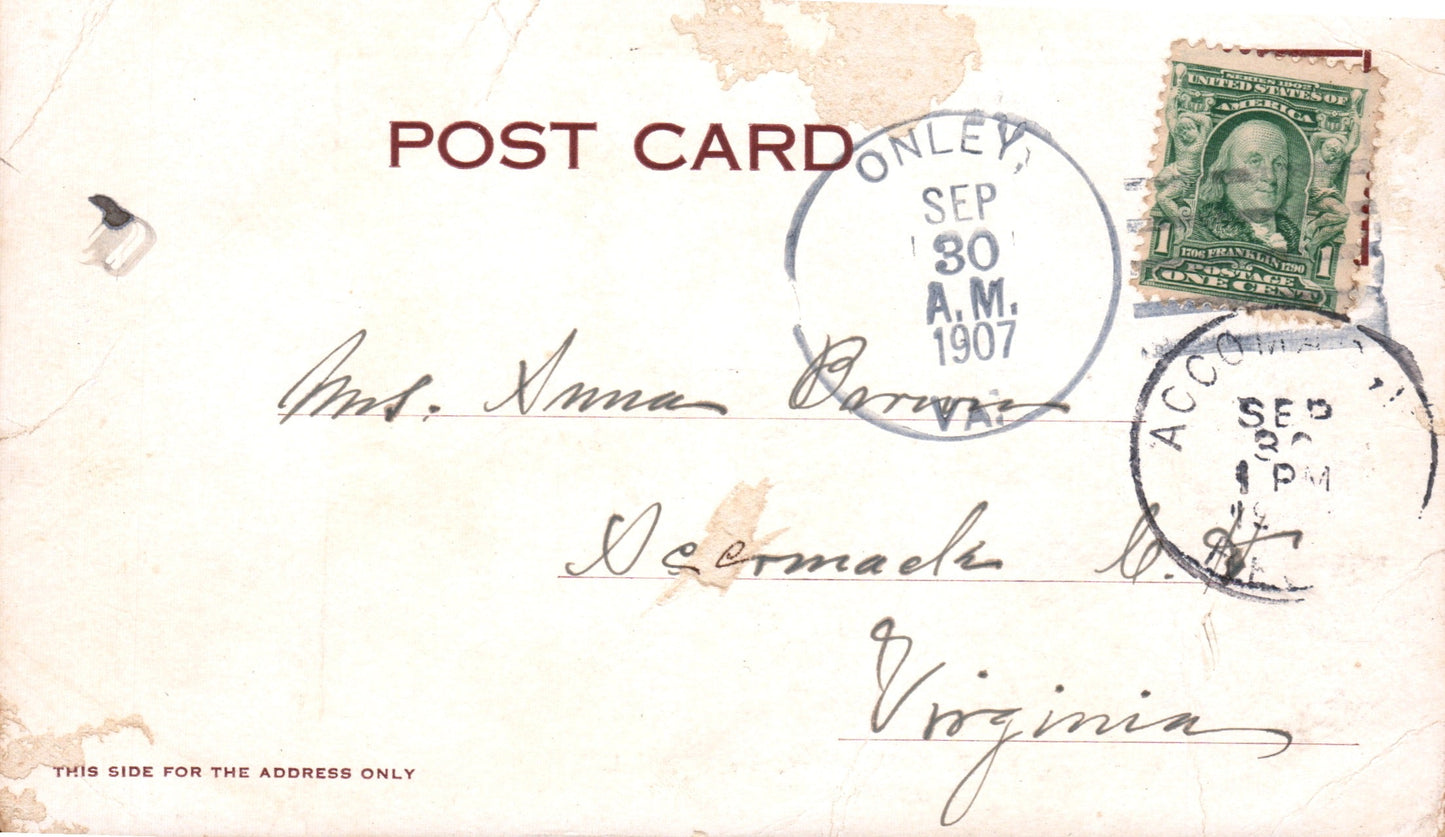 POST CARD
ONLEY,
SEP
30
A.M.
1907
VA.
SERIES 1902
UNITED STATES OF
AMERICA
1706 FRANKLIN 1790
1 1
POSTAGE
ONE CENT
ACCOMAC
SEP
30
1 PM
Mrs. Anna
Accomack C. H.
Virginia
THIS SIDE FOR THE ADDRESS ONLY